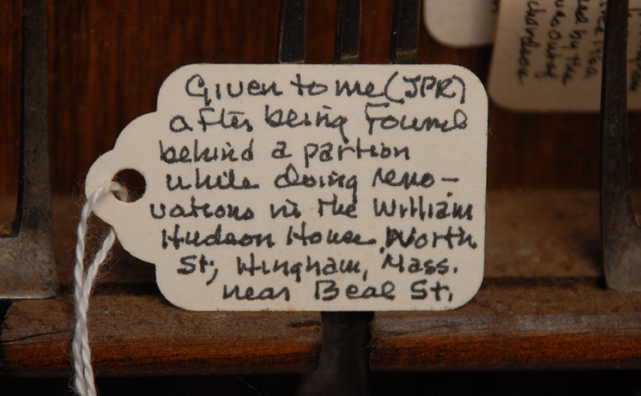 Given to me (JPR)
after being Found
behind a partion
while doing reno-
vations in the William
Hudson House. Worth
St., Hingham, Mass.
near Beal St.